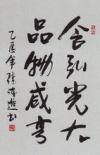 含弘光大
品物咸亨
乙
年
书